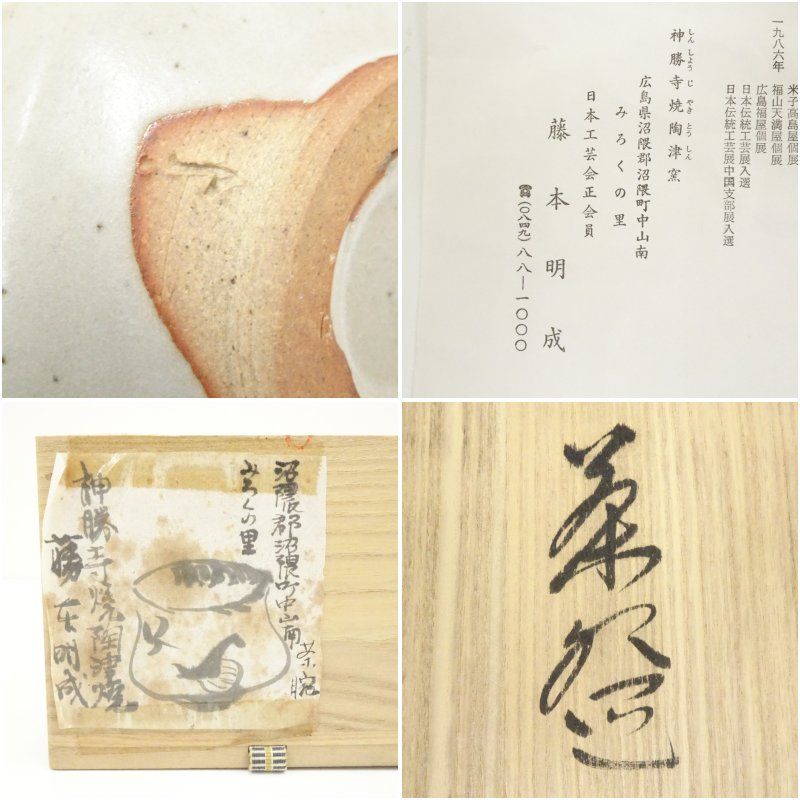 一九八六年
米子高島屋個展
福山天満屋個展
広島福屋個展
日本伝統工芸展入選
日本伝統工芸展中国支部展入選
神勝寺焼陶津窯
しんしょうじやきとうしん
広島県沼隈郡沼隈町中山南
みろくの里
日本工芸会正会員
藤本明成
(〇八四九)八八―一〇〇〇
沼隈郡沼隈町中山南
みろくの里
茶腕
神勝寺焼陶津窯
藤本明成
茶碗